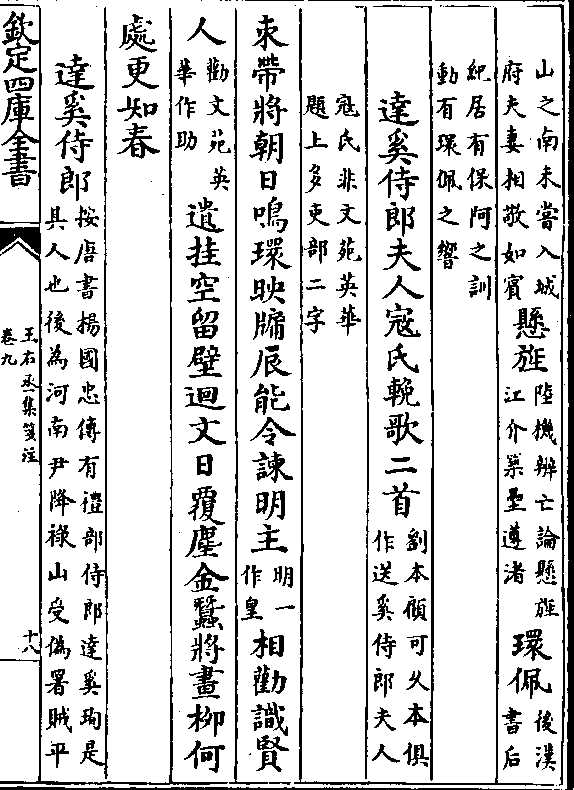 山之南未嘗入城
府夫妻相敬如賓
懸旌
陸機辨亡論懸旌
江介築壘遵渚
環佩
後漢書后
紀居有保阿之訓
動有環佩之響
達奚侍郎夫人寇氏輓歌二首
劉本顧可久本俱
作送奚侍郎夫人
寇氏非文苑英華
題上多吏部二字
束帶將朝日鳴環映牖辰能令諫明主
明一
作皇
相勸識賢
人
勸文苑英
華作助
遺挂空留壁迴文日覆塵金蠶將畫柳何
處更知春
達奚侍郎
按唐書楊國忠傳有禮部侍郎達奚珣是
其人也後為河南尹降祿山受偽署賊平
欽定四庫全書
王右丞集箋注
卷九
十八